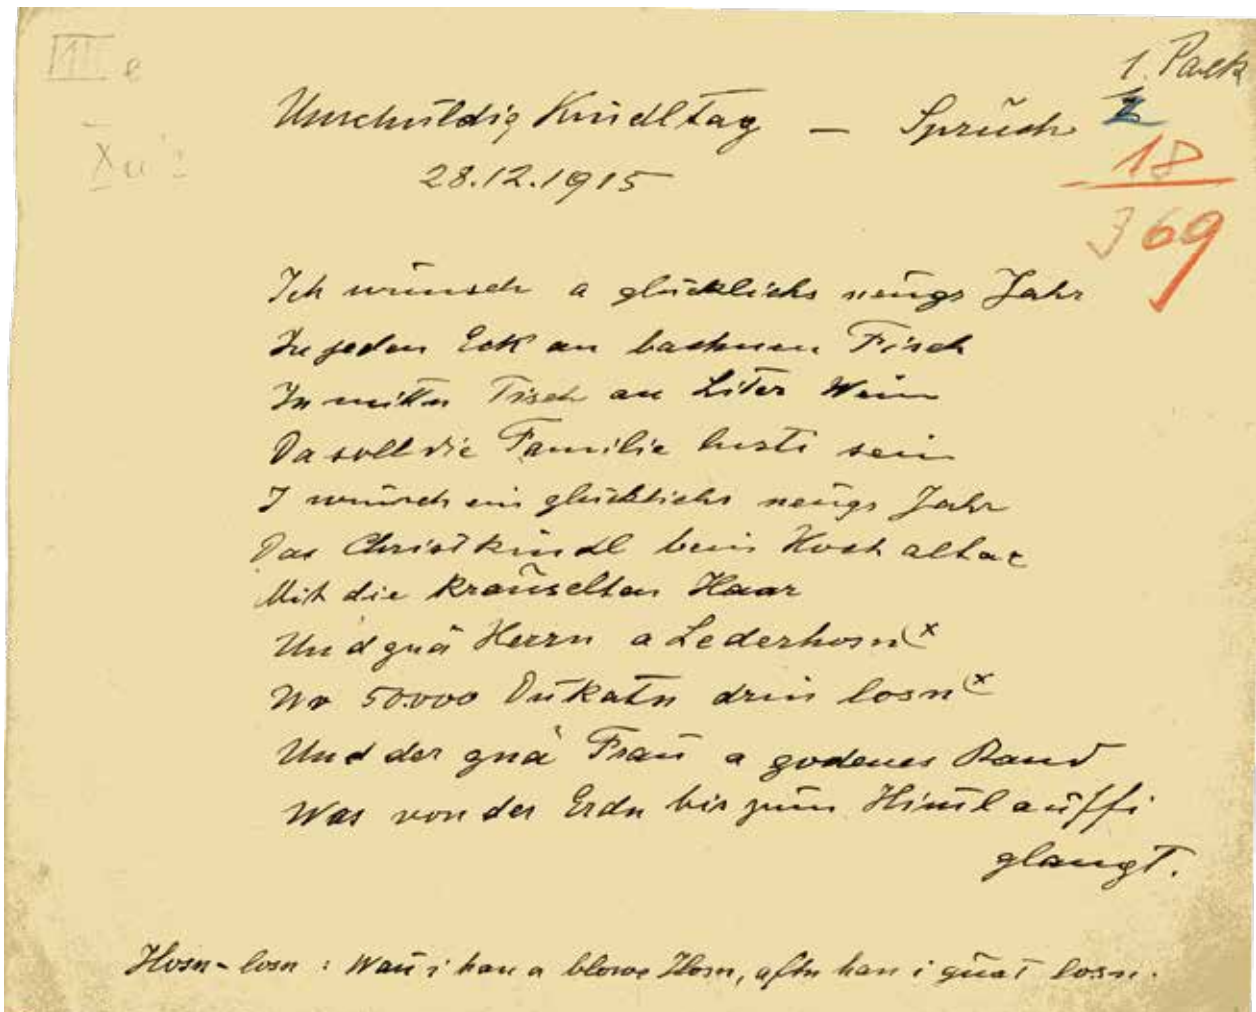 III e
1. Pack
Unschuldig Kindltag — Sprüch
2
28.12.1915
18
369
Ich wünsch a glücklichs neugs Jahr
In jeden Eck an bachnen Fisch
In mittn Tisch an Liter Wein
Da soll die Familie lusti sein
I wünsch ein glücklichs neugs Jahr
Das Christkindl beim Hochaltar
Mit die kräuselten Haar
Und gnä Herrn a Lederhosn x
Wo 50.000 Dukatn drin losn x
Und der gnä Frau a godenes Band
Was von der Erdn bis zum Himl auffi
glangt.
Hosn-losn: Waun i han a blowe Hosn, aftn han i guat losn.